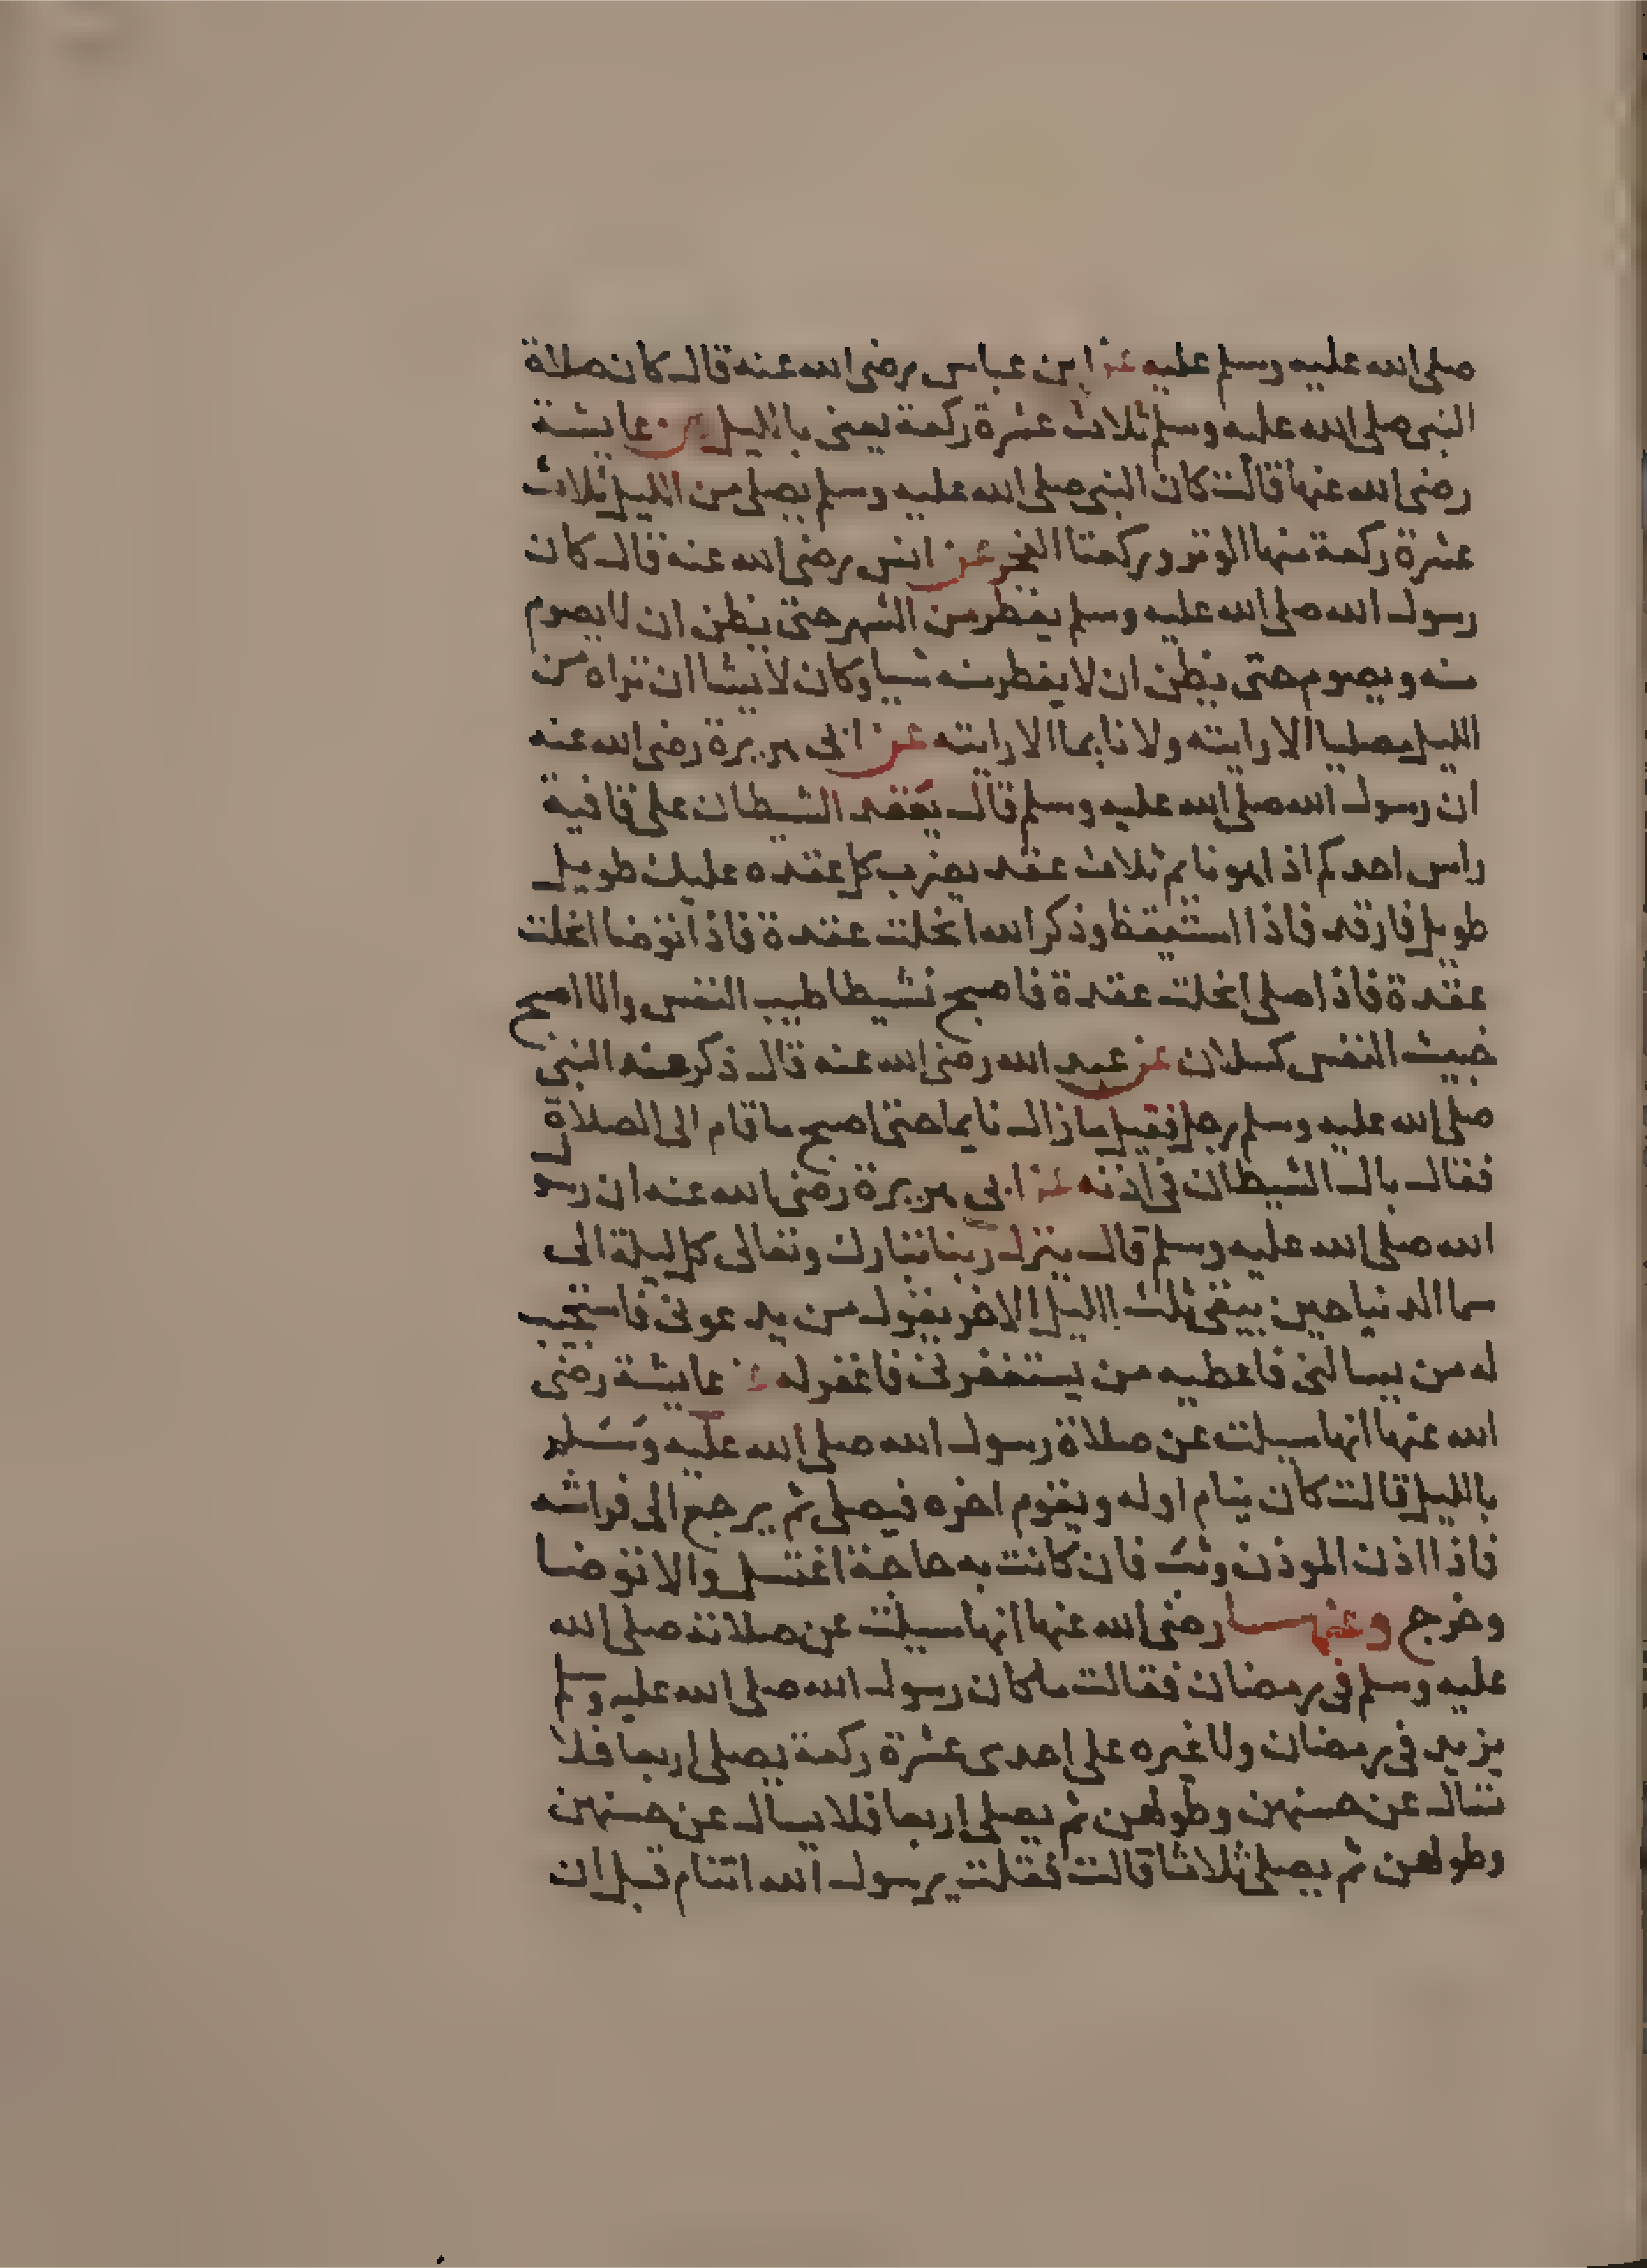 صلى الله عليه وسلم عليه عن ابن عباس رضى الله عنه قال كان صلاة
النبى صلى الله عليه وسلم ثلاث عشرة ركعة يعنى بالليل عن عايشة
رضى الله عنها قالت كان النبى صلى الله عليه وسلم يصلى من الليل ثلاث
عشرة ركعة منها الوتر وركعتا الفجر عن انس رضى الله عنه قال كان
رسول الله صلى الله عليه وسلم يفطر من الشهر حتى نظن ان لا يصوم
منه ويصوم حتى نظن ان لا يفطر منه شيا وكان لا تشا ان تراه من
الليل مصليا الا رايته ولا نايما الا رايته عن ابى هريرة رضى الله عنه
ان رسول الله صلى الله عليه وسلم قال يعقد الشيطان على قافية
راس احدكم اذا هو نايم ثلاث عقد يضرب كل عقده عليك طويل
طويل فارقد فاذا استيقظ وذكر الله انحلت عقدة فاذا توضا انحلت
عقدة فاذا صلى انحلت عقدة فاصبح نشيطا طيب النفس والا اصبح
خبيث النفس كسلان عن عبد الله رضى الله عنه قال ذكر عند النبى
صلى الله عليه وسلم رجل فقيل ما زال نايما حتى اصبح ما قام الى الصلاة
فقال بال الشيطان فى اذنه عن ابى هريرة رضى الله عنه ان رسول
الله صلى الله عليه وسلم قال ينزل ربنا تبارك وتعالى كل ليلة الى
سما الدنيا حين يبقى ثلث الليل الاخر يقول من يدعونى فاستجيب
له من يسالنى فاعطيه من يستغفرنى فاغفر له عن عايشة رضى
الله عنها انها سيلت عن صلاة رسول الله صلى الله عليه وسلم
بالليل قالت كان ينام اوله ويقوم اخره فيصلى ثم يرجع الى فراشه
فاذا اذن الموذن وثب فان كانت به حاجة اغتسل والا توضا
وخرج وعنها رضى الله عنها انها سيلت عن صلاته صلى الله
عليه وسلم فى رمضان فقالت ما كان رسول الله صلى الله عليه وسلم
يزيد فى رمضان ولا غيره على احدى عشرة ركعة يصلى اربعا فلا
تسال عن حسنهن وطولهن ثم يصلى اربعا فلا يسال عن حسنهن
وطولهن ثم يصلى ثلاثا قالت فقلت يرسول الله اتنام قبل ان